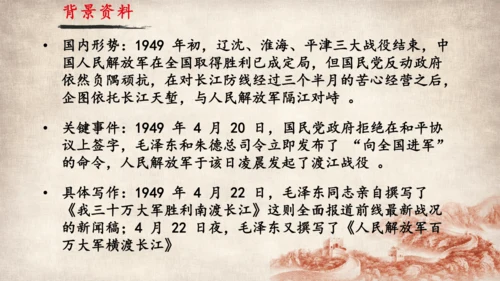 背景资料
• 国内形势：1949 年初，辽沈、淮海、平津三大战役结束，中
国人民解放军在全国取得胜利已成定局，但国民党反动政府
依然负隅顽抗，在对长江防线经过三个半月的苦心经营之后，
企图依托长江天堑，与人民解放军隔江对峙 。
• 关键事件：1949 年 4 月 20 日，国民党政府拒绝在和平协
议上签字，毛泽东和朱德总司令立即发布了 “向全国进军”
的命令，人民解放军于该日凌晨发起了渡江战役 。
• 具体写作：1949 年 4 月 22 日，毛泽东同志亲自撰写了
《我三十万大军胜利南渡长江》这则全面报道前线最新战况
的新闻稿；4 月 22 日夜，毛泽东又撰写了《人民解放军百
万大军横渡长江》